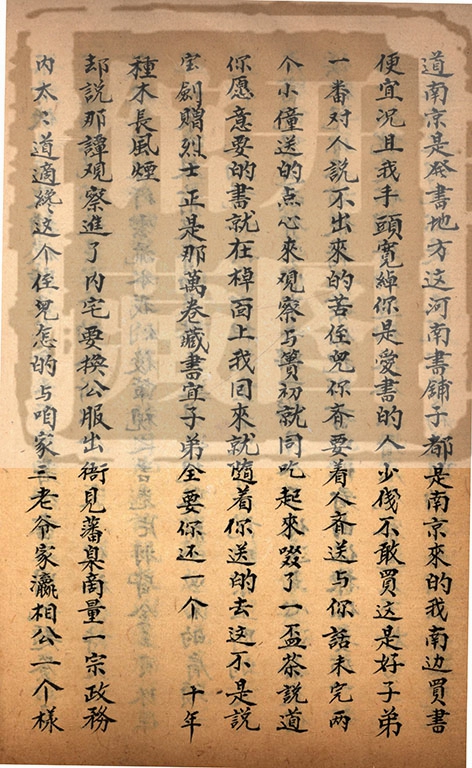 道南京是發書地方这河南書鋪子都是南京來的我南边買書
便宜况且我手頭寬綽你是愛書的人少不敢買這是好子弟
一番对人說不出來的苦侄兒你斉要着人斉送与你話未完两
个小僮送的点心來观察与簣初就同吃起來啜了一盃茶説道
你愿意要的書就在棹面上我回來就隨着你送的去这不是説
宝劍贈烈士正是那萬卷藏書宜子弟全要你还一个 十年
種木長風煙
却説那譚观察進了内宅要換公服出衙見藩臬商量一宗政務
内太々道適終这个侄兒怎的与咱家三老爷家瀛相公一个様